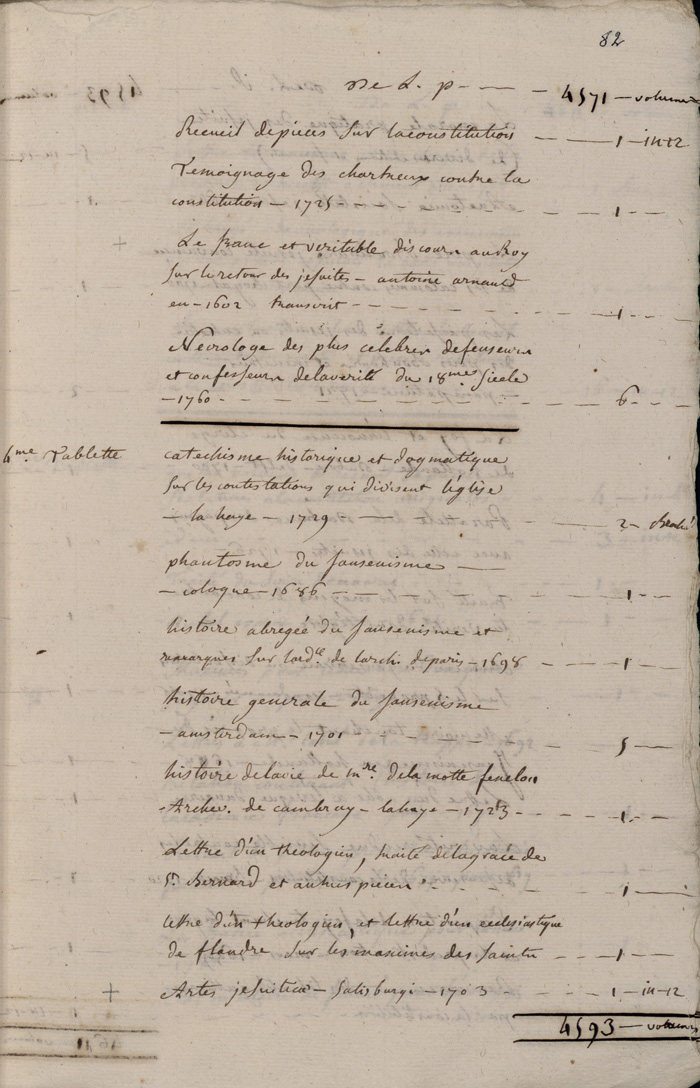 82
De L. p — 4571 — volumes
Recueil de pieces Sur la constitution — 1 — in-12
Temoignage des chartreux contre la
constitution — 1725 — 1 —
+ Le franc et veritable discours au Roy
Sur le retour des jesuites — antoine arnauld
en — 1602 transcrit — 1 —
Necrologe des plus celebres defenseurs
et confesseurs de la verité du 18me Siecle
— 1760 — 6 —
6me Tablette catechisme historique et dogmatique
Sur les contestations qui divisent l'église
— la haye — 1729 — 2 —
phantosme du Jansenisme —
— cologne — 1686 — 1 —
histoire abregée du Jansenisme et
remarques Sur l'ordce de l'arch. de paris — 1698 — 1 —
histoire generale du Jansenisme
— amsterdam — 1701 — 5 —
histoire de la vie de mre. de la motte fenelon
Archev. de cambray — la haye — 1723 — 1 —
Lettre d'un theologien, traité de la grace de
St. Bernard et autres pieces — 1 —
lettre d'un theologien, et lettre d'un ecclesiastique
de flandre Sur les maximes des Saints — 1 —
+ Artes jesuiticæ — Salisburgi — 1703 — 1 — in-12
4593 — volumes